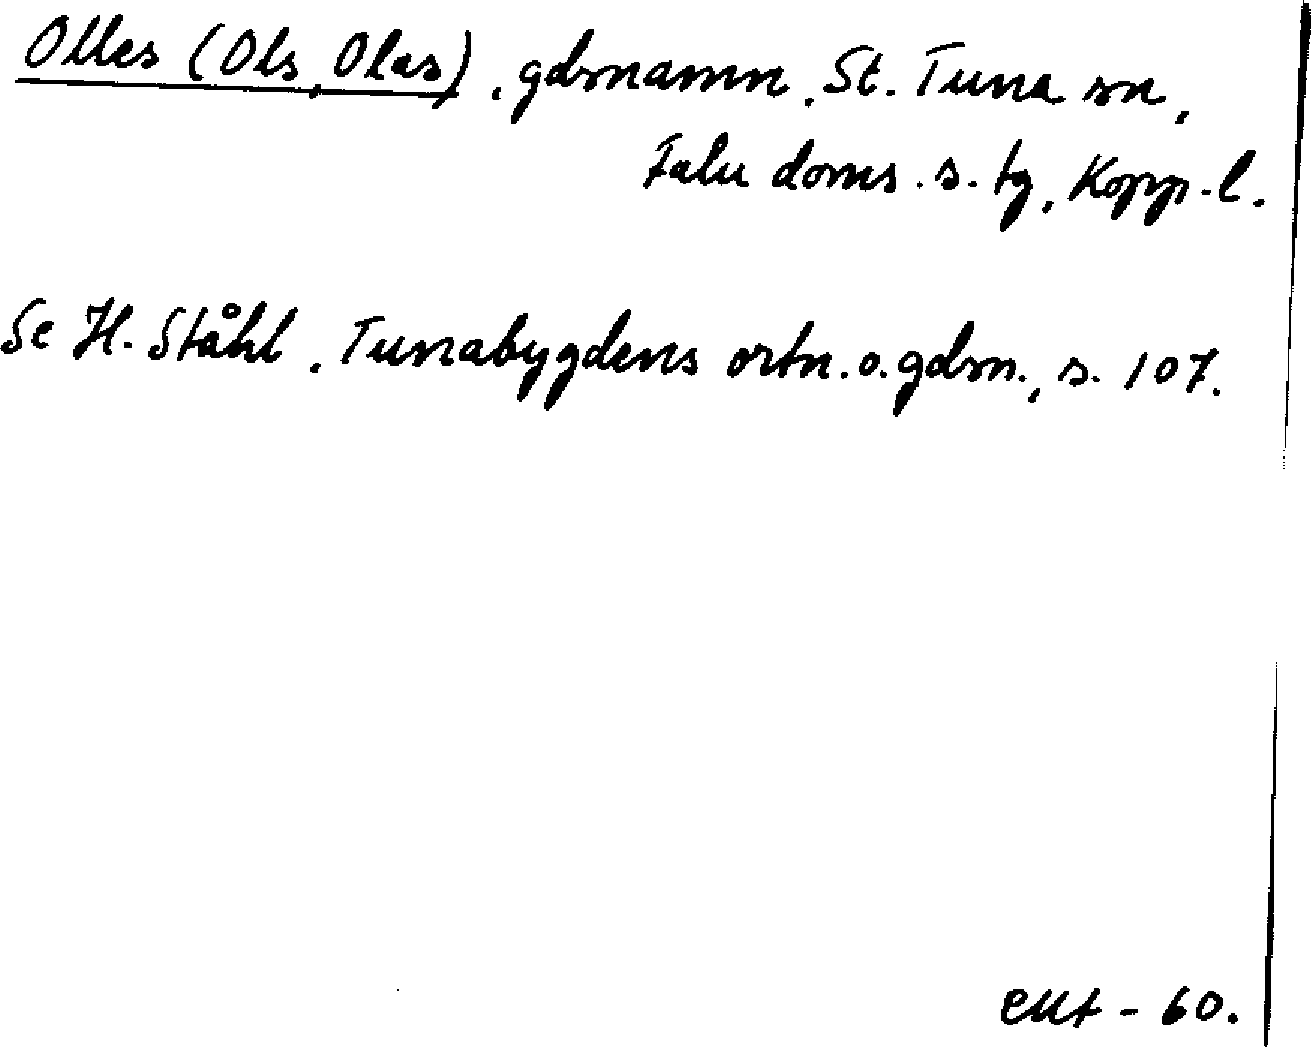 Olles (Ols, Olas), gdsnamn, St. Tuna sn,
Falu doms. s. tg, Kopp. l.
Se H. Ståhl, Tunabygdens ortn. o. gdsn., s. 107.
- 60.